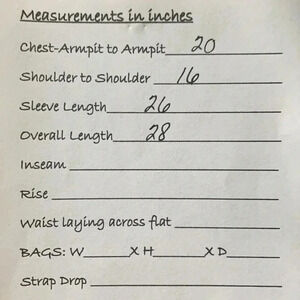 Measurements in inches
Chest-Armpit to Armpit 20
Shoulder to Shoulder 16
Sleeve Length 26
Overall Length 28
Inseam
Rise
Waist laying across flat
BAGS: W______X H______X D______
Strap Drop